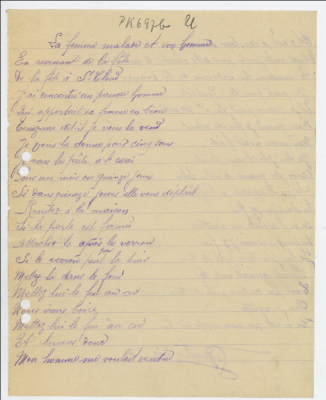 PK697b U
La femme malade et son homme
En revenant de la fête
De la fête à St Cloud
J'ai rencontré un pauvre homme
Qui apportait sa femme en
dit il je vous la vend
Je vous la donne pour cinq sous
Je vous la prête à l'essai
Pour un mois ou quinze jours
Si dans quinze jours elle vous déplait
Rentrez à la maison
Si la porte est fermée
Attachez la après le verrou
Si le verrou
Mettez la dans le four
Mettez lui le feu au cul
Nous irons boire
Mettez lui le feu au cul
Et buvons donc
Mon homme me voulait vendre